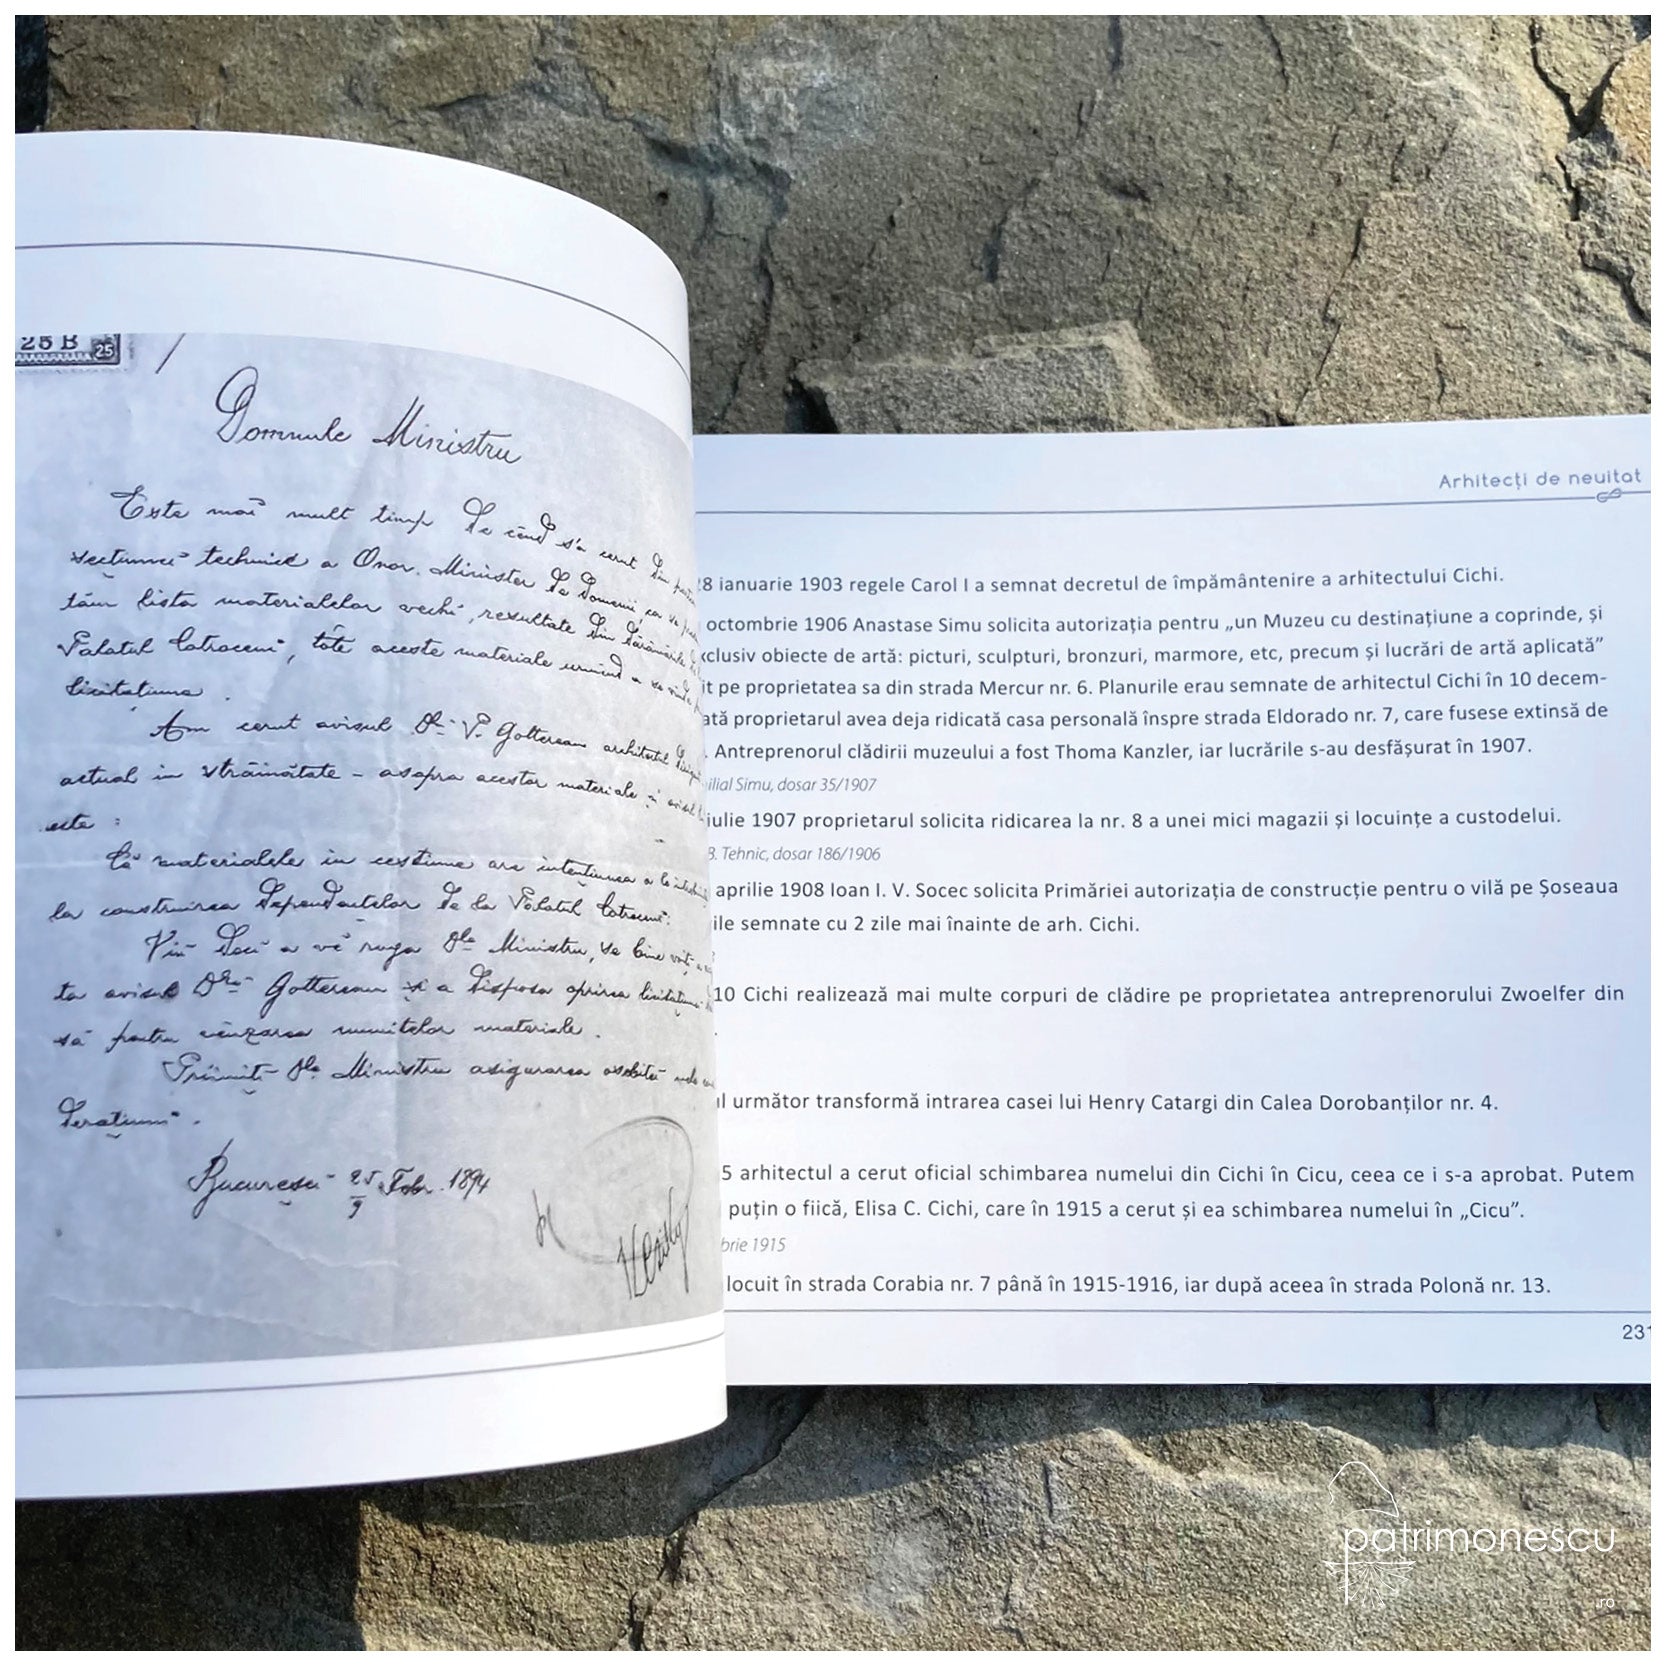 25 B 25
Domnule Ministru
Este mai mult timp de când s'a cerut din partea
secțiunei technice a Onor. Minister de Domenii, ca se
tăm lista materialelor vechi, rezultate din dărâmările
Palatul Cotroceni, tóte aceste materiale urmând a se vinde
licitațiune.
Am cerut avisul Dlui P. Gottereau architectul
actual in străinătate - asupra acestor materiale și avisul
este :
Că materialele in cestiune are intențiunea a le
la construirea dependentelor de la Palatul Cotroceni.
Viu deci a vĕ ruga Dle Ministru, se bine voiți a
ta avisul Dlui Gottereau și a disposa oprirea licitațiunei
să pentru vênzarea numitelor materiale.
Priimiți Dle Ministru asigurarea osebitei mele
derațiuni.
Bucuresci 25/9 Febr. 1894
Arhitecți de neuitat
8 ianuarie 1903 regele Carol I a semnat decretul de împământenire a arhitectului Cichi.
octombrie 1906 Anastase Simu solicita autorizația pentru „un Muzeu cu destinațiune a coprinde, și
xclusiv obiecte de artă: picturi, sculpturi, bronzuri, marmore, etc, precum și lucrări de artă aplicată”
it pe proprietatea sa din strada Mercur nr. 6. Planurile erau semnate de arhitectul Cichi în 10 decem-
ată proprietarul avea deja ridicată casa personală înspre strada Eldorado nr. 7, care fusese extinsă de
. Antreprenorul clădirii muzeului a fost Thoma Kanzler, iar lucrările s-au desfășurat în 1907.
ilial Simu, dosar 35/1907
iulie 1907 proprietarul solicita ridicarea la nr. 8 a unei mici magazii și locuințe a custodelui.
B. Tehnic, dosar 186/1906
aprilie 1908 Ioan I. V. Socec solicita Primăriei autorizația de construcție pentru o vilă pe Șoseaua
ile semnate cu 2 zile mai înainte de arh. Cichi.
10 Cichi realizează mai multe corpuri de clădire pe proprietatea antreprenorului Zwoelfer din
.
l următor transformă intrarea casei lui Henry Catargi din Calea Dorobanților nr. 4.
5 arhitectul a cerut oficial schimbarea numelui din Cichi în Cicu, ceea ce i s-a aprobat. Putem
puțin o fiică, Elisa C. Cichi, care în 1915 a cerut și ea schimbarea numelui în „Cicu”.
brie 1915
locuit în strada Corabia nr. 7 până în 1915-1916, iar după aceea în strada Polonă nr. 13.
231
patrimonescu
.ro